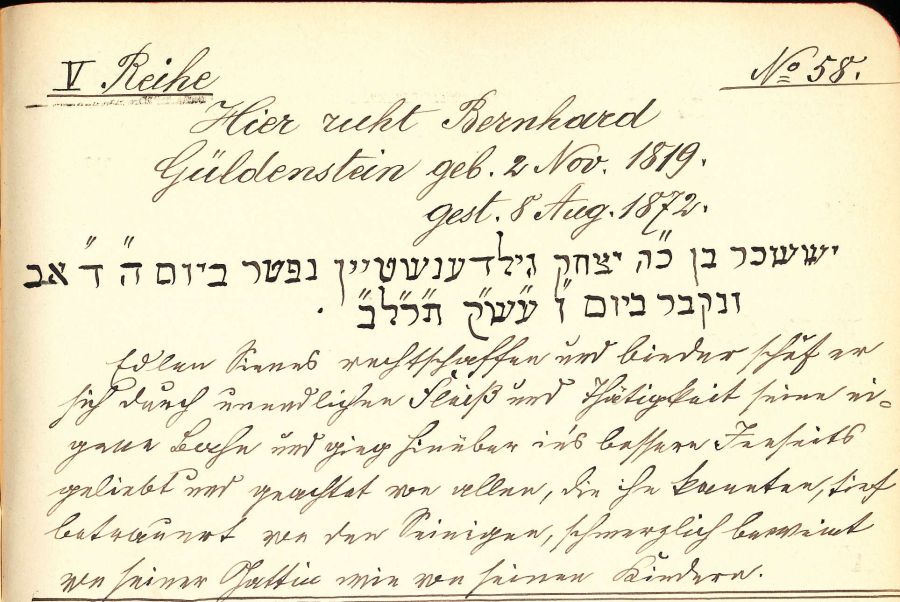 V Reihe
No 58.
Hier ruht Bernhard
Güldenstein geb. 2 Nov. 1819.
gest. 8 Aug. 1872.
יששכר בן כ"ה יצחק גילדענשטיין נפטר ביום ה" ד" אב
ונקבר ביום ו" עש"ק תרל"ב.
Edlen Sinnes rechtschaffen und bieder schuf er
sich durch unendlichen Fleiß und Thätigkeit seine ei-
gene Bahn und ging hinüber in's bessere Jenseits
geliebt und geachtet von allen, die ihn kannten, tief
betrauert von den Seinigen, schmerzlich beweint
von seiner Gattin wie von seinen Kindern.